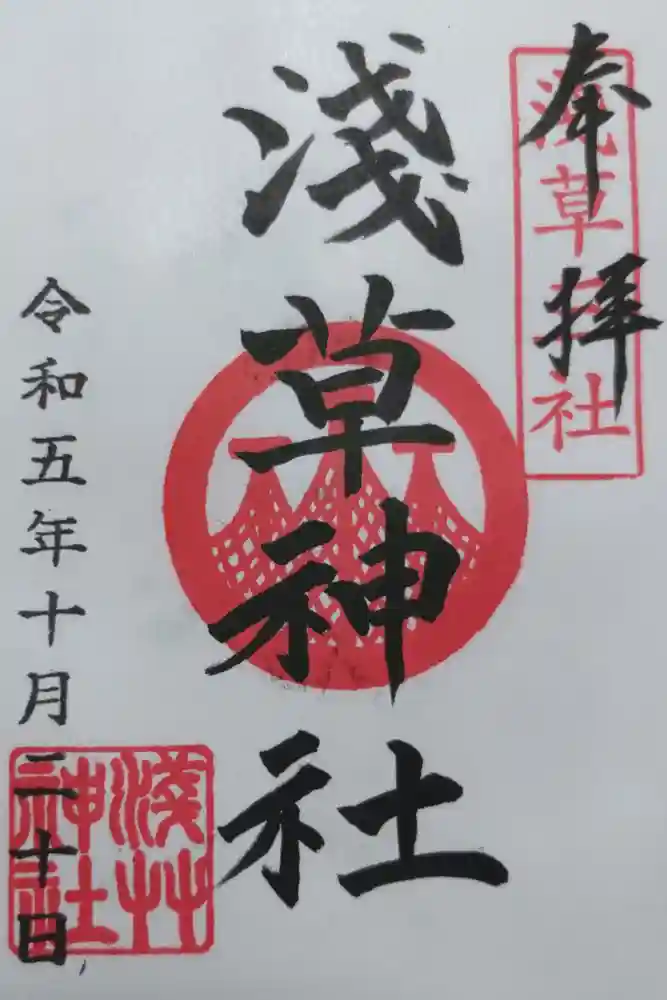 奉拝
淺草神社
淺草神社
令和五年十月二十日
淺草神社